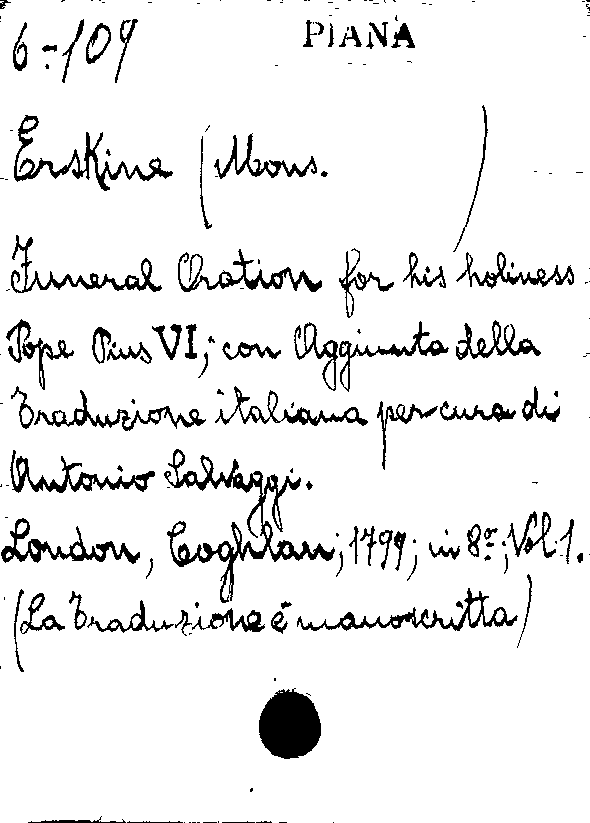 6-109 PIANA
Erskine (Mons. )
Funeral Oration for his holiness
Pope Pius VI; con Aggiunta della
Traduzione italiana per cura di
Antonio Salvaggi.
London, Coghlan; 1799; in 8º; Vol. 1.
(La Traduzione è manoscritta)